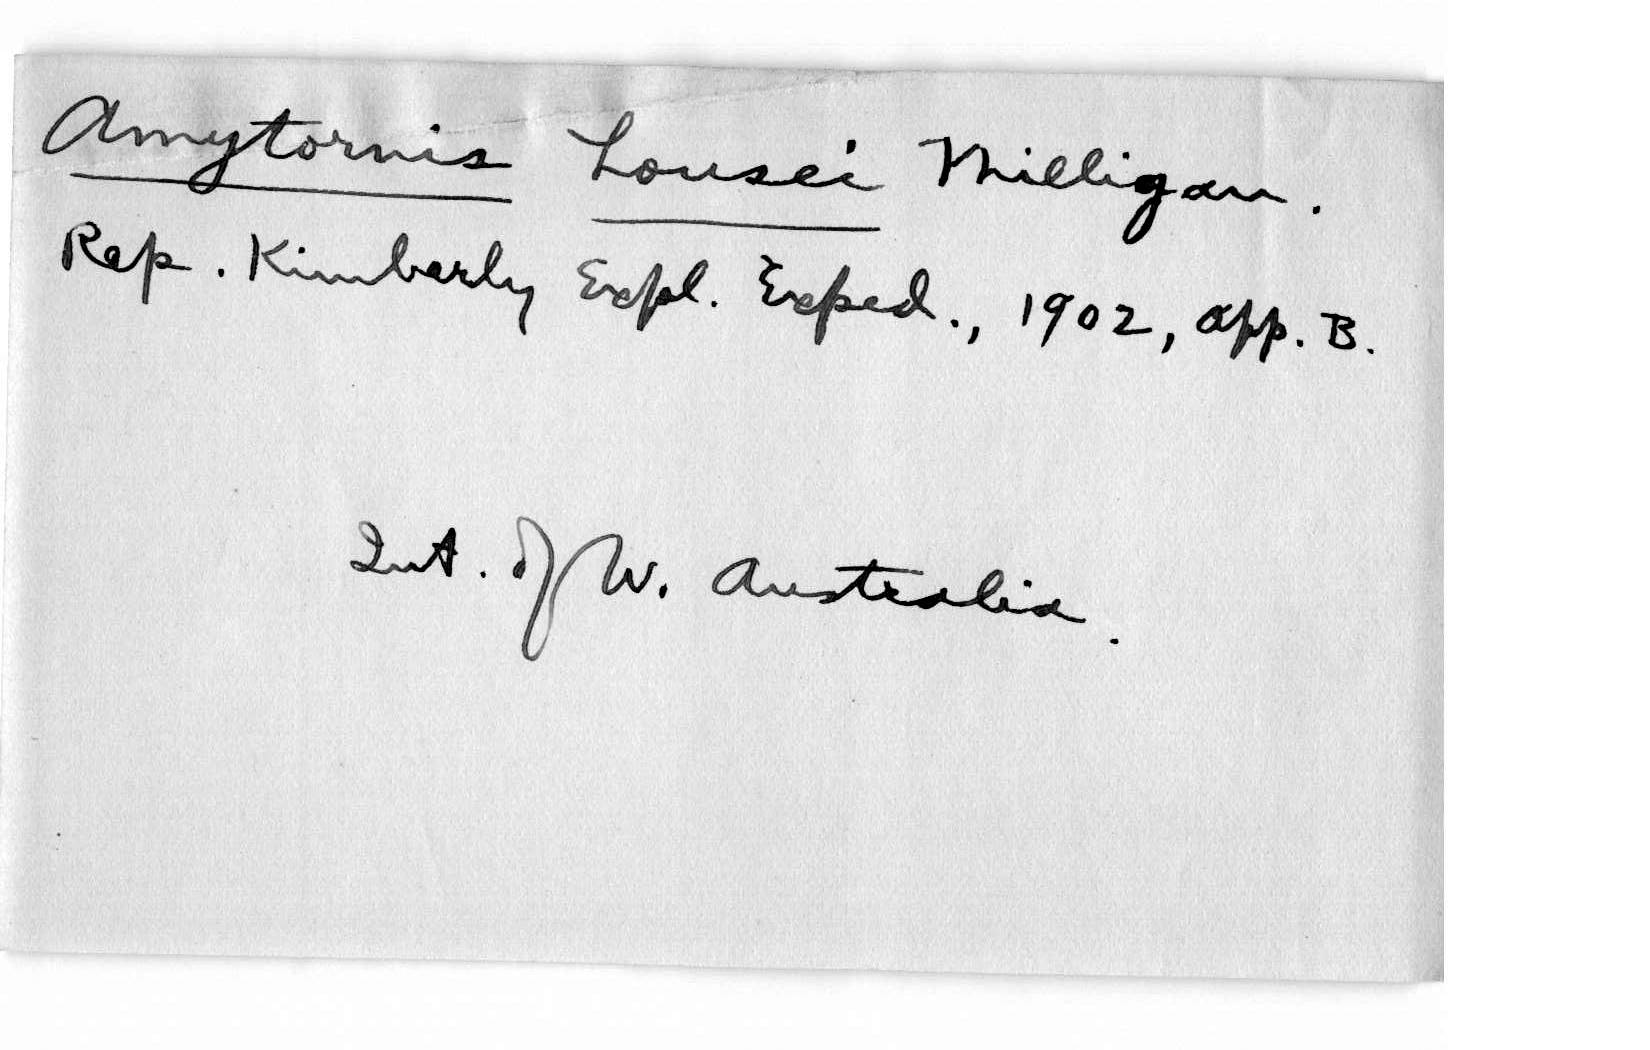 Amytornis housei Milligan.
Rep. Kimberly Expl. Exped., 1902, App. B.
Int. of W. Australia.